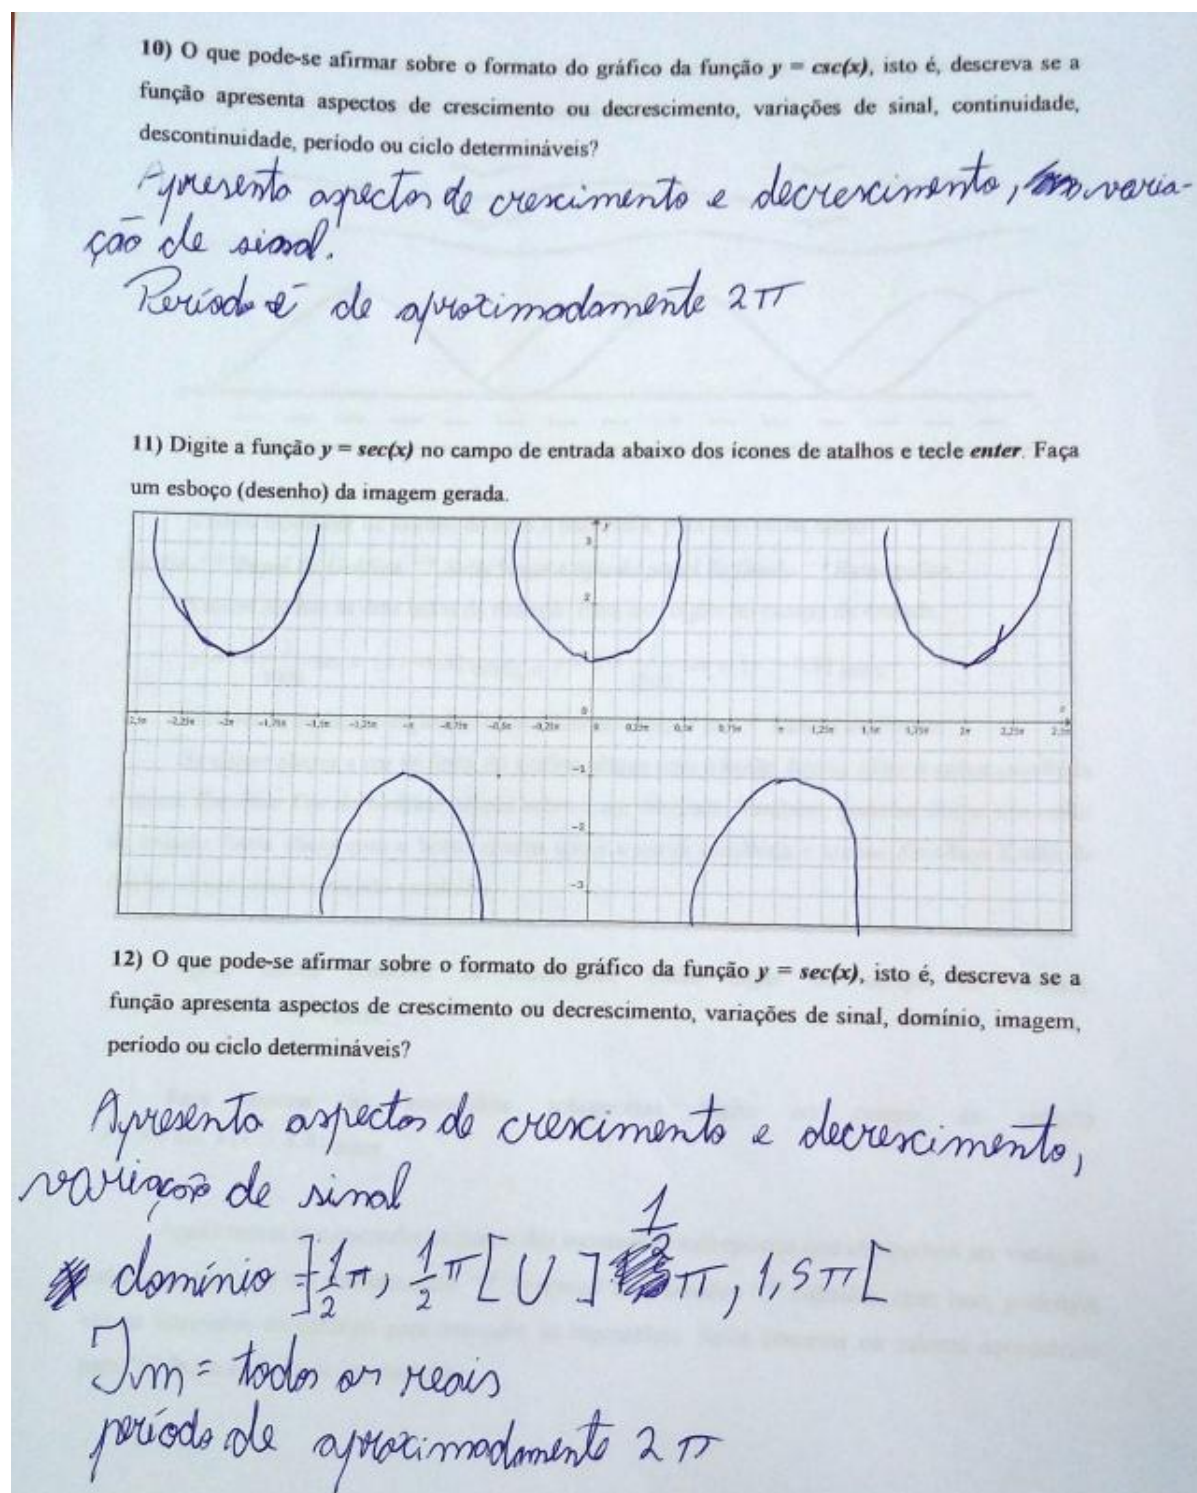 10) O que pode-se afirmar sobre o formato do gráfico da função y = csc(x), isto é, descreva se a
função apresenta aspectos de crescimento ou decrescimento, variações de sinal, continuidade,
descontinuidade, período ou ciclo determináveis?
Apresenta aspectos de crescimento e decrescimento, varia-
ção de sinal.
Período é de aproximadamente 2π
11) Digite a função y = sec(x) no campo de entrada abaixo dos ícones de atalhos e tecle enter. Faça
um esboço (desenho) da imagem gerada.
y
3
2
0
2,5π −2,25π −2π −1,75π −1,5π −1,25π −π −0,75π −0,5π −0,25π 0 0,25π 0,5π 0,75π π 1,25π 1,5π 1,75π 2π 2,25π 2,5π
−1
−2
−3
12) O que pode-se afirmar sobre o formato do gráfico da função y = sec(x), isto é, descreva se a
função apresenta aspectos de crescimento ou decrescimento, variações de sinal, domínio, imagem,
período ou ciclo determináveis?
Apresenta aspectos de crescimento e decrescimento,
variação de sinal
domínio ]-1/2 π, 1/2 π[ U ] 1/2 π, 1,5 π[
Im = todos os reais
período de aproximadamente 2 π